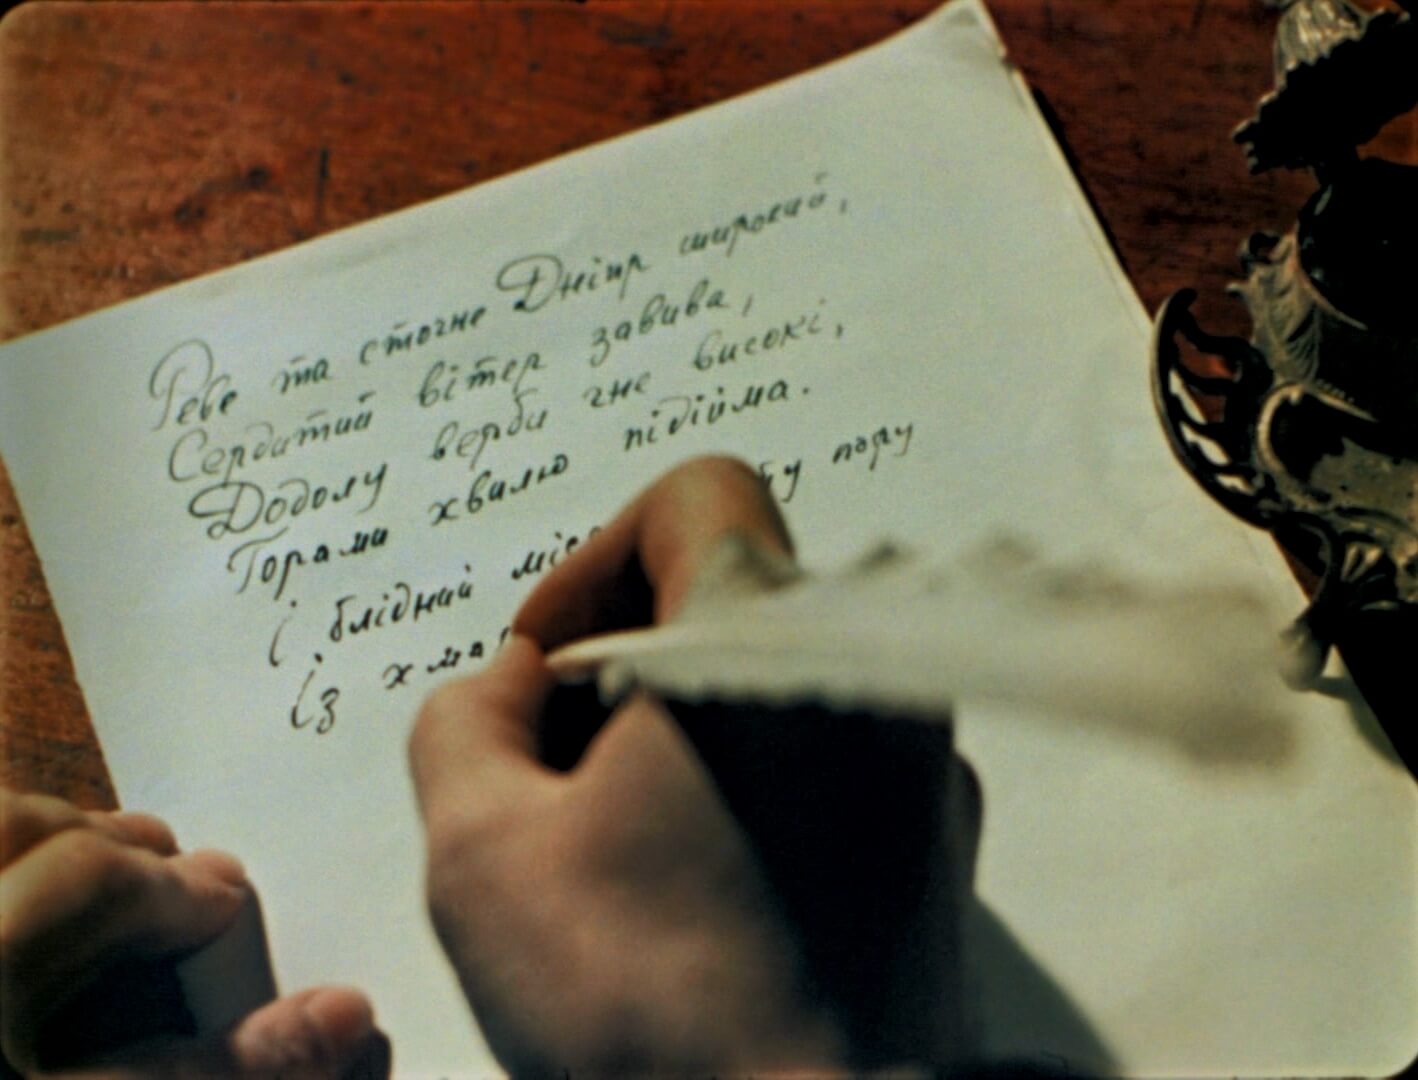 Реве та стогне Дніпр широкий,
Сердитий вітер завива,
Додолу верби гне високі,
Горами хвилю підійма.
і блідний пору
із